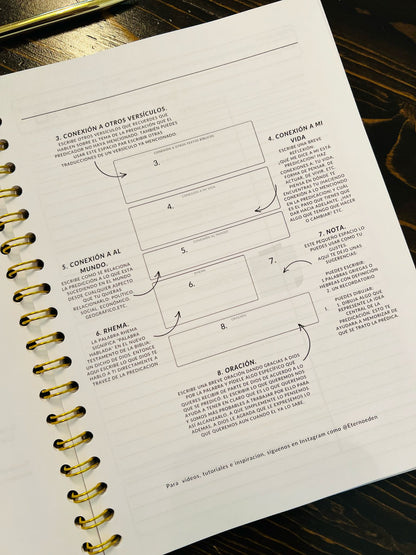 3. CONEXIÓN A OTROS VERSÍCULOS.
ESCRIBE OTROS VERSÍCULOS QUE RECUERDES QUE
HABLEN SOBRE EL TEMA DE LA PREDICACIÓN QUE EL
PREDICADOR NO HAYA MENCIONADO. TAMBIÉN PUEDES
USAR ESTE ESPACIO PAR ESCRIBIR OTRAS
TRADUCCIONES DE UN VERSÍCULO YA MENCIONADO.
CONEXIÓN A OTROS TEXTOS BÍBLICOS
3.
4. CONEXIÓN A MI
VIDA
ESCRIBE UNA BREVE
REFLEXIÓN.
¿QUÉ ME DICE A MI ESTA
PREDICACIÓN? HAZ
CONEXIONES A TU VIDA,
FORMA DE PENSAR, DE
ACTUAR, DE VIVIR, ETC.
PIENSA EN DÓNDE TE
ENCUENTRAS TU HACIENDO
CONEXIÓN A LO MENCIONDO
EN LA PREDICACIÓN Y CUAL
ES EL PASO QUE TIENES QUE
DAR HACIA ADELANTE. ¿HAY
ALGO QUE TENGO QUE HACER
O CAMBIAR? ETC.
CONEXIÓN A MI VIDA
4.
5.
5. CONEXIÓN A AL
MUNDO.
ESCRIBE COMO SE RELACIONA
LA PREDICCIÓN A LO QUE ESTA
SUCEDIENDO EN EL MUNDO
DESDE CUALQUIER ASPECTO
QUE TU QUIERAS
RELACIONARLO. POLÍTICO,
SOCIAL, ECONÓMICO,
GEOGRÁFICO, ETC.
RHEMA
6.
7.
7. NOTA.
ESTE PEQUEÑO ESPACIO LO
PUEDES USAR COMO TU
GUSTES.
AQUI TE DEJO UNAS
SUGERENCIAS:
PUEDES ESCRIBIR:
1. PALABRAS GRIEGAS O
HEBREAS CON DEFINICIÓN
2. UN RECORDATORIO
PUEDES DIBUJAR:
1. DIBUJA ALGO QUE
REPRESENTE LA IDEA
CENTRAL DE LA
PREDICACIÓN. ESTO TE
AYUDARA A MEMORIZAR DE
QUE SE TRATO LA PRÉDICA
6. RHEMA.
LA PALABRA RHEMA
SIGNIFICA "PALABRA
HABLADA" EN EL NUEVO
TESTAMENTO DE LA BIBLIA.
UN DICHO DE DIOS. ENTONCE
AQUI ESCRIBE LO QUE DIOS TE
HABLO A TI DIRECTAMENTE A
TRAVEZ DE LA PREDICACION
ORACIÓN
8.
8. ORACIÓN.
ESCRIBE UNA BREVE ORACIÓN DANDO GRACIAS A DIOS
POR LA PALABRA Y PIDELE ALGO ESPECÍFICO QUE
QUIERES RECIBIR DE PARTE DE DIOS DE ACUERDO A LO
QUE SE PREDICÓ. EL ESCRIBIR LO QUE QUEREMOS NOS
AYUDA A TENER EN CLARO QUE ES LO QUE QUEREMOS
Y SOMOS MAS PROBABLES A TRABAJAR POR ELLO PARA
ASI ALCANZARLO, A QUE SIMPLEMENTE LO PENSEMOS.
ADEMAS, A DIOS LE AGRADA QUE LE EXPRESEMOS LO
QUE QUEREMOS AUN CUANDO EL YA LO SABE.
Para videos, tutoriales e inspiracion, siguenos en Instagram como @Eternoeden